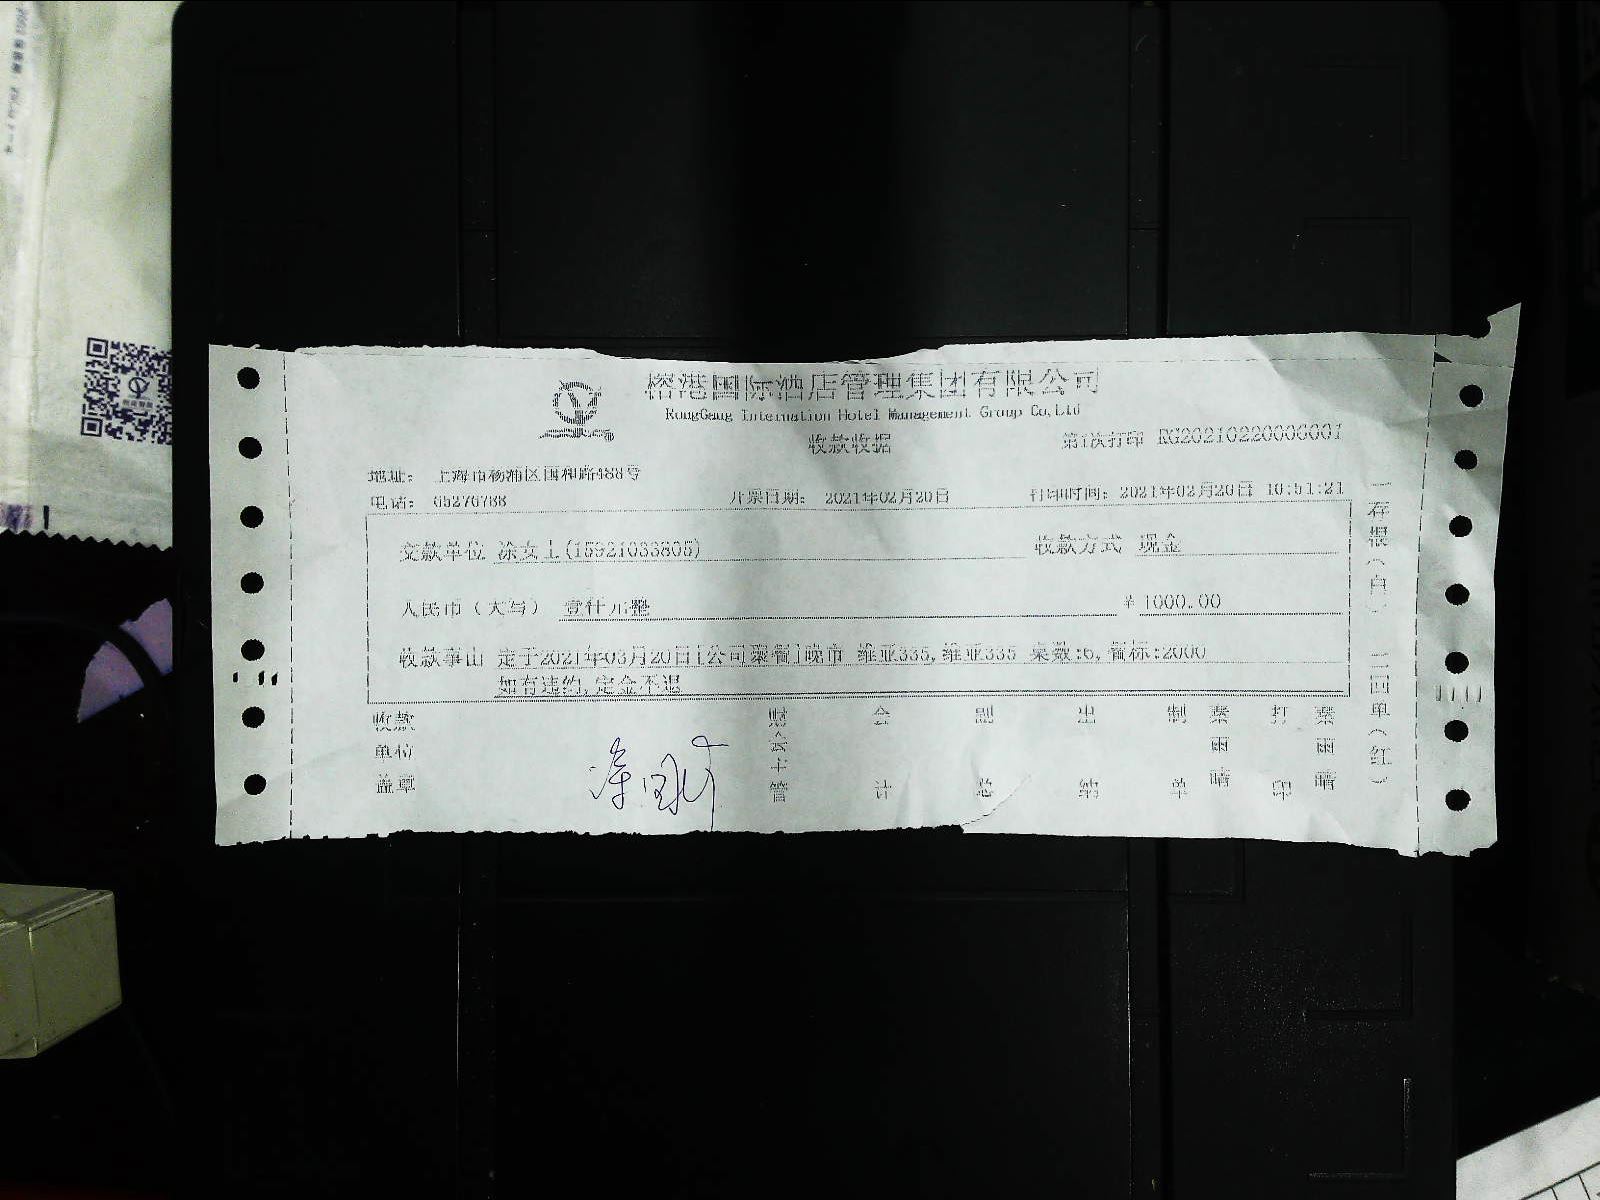 榕港国际酒店管理集团有限公司
RongGang Internation Hotel Management Group Co,Ltd
收款收据
第1次打印 RG20210220006001
地址： 上海市杨浦区国和路488号
电话： 65276788 开票日期： 2021年02月20日 打印时间：2021年02月20日 10:51:21
交款单位 涂女士(15921033805) 收款方式 现金
人民币（大写） 壹仟元整 ¥ 1000.00
收款事由 定于2021年03月20日[公司聚餐]晚市 维亚335,维亚335 桌数:6,餐标:2000
如有违约,定金不退
收款单位盖章 财会主管 会计 副总 出纳 制单 打印
一存根（白） 二回单（红）